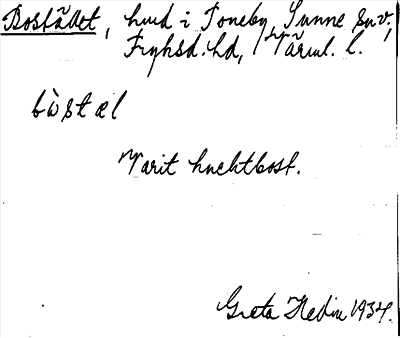 Bostället, hmd i Toneby, Sunne sn,
Fryksd. hd, Värml. l.
bòstæl
Varit knektbost.
Greta Hedin 1934.